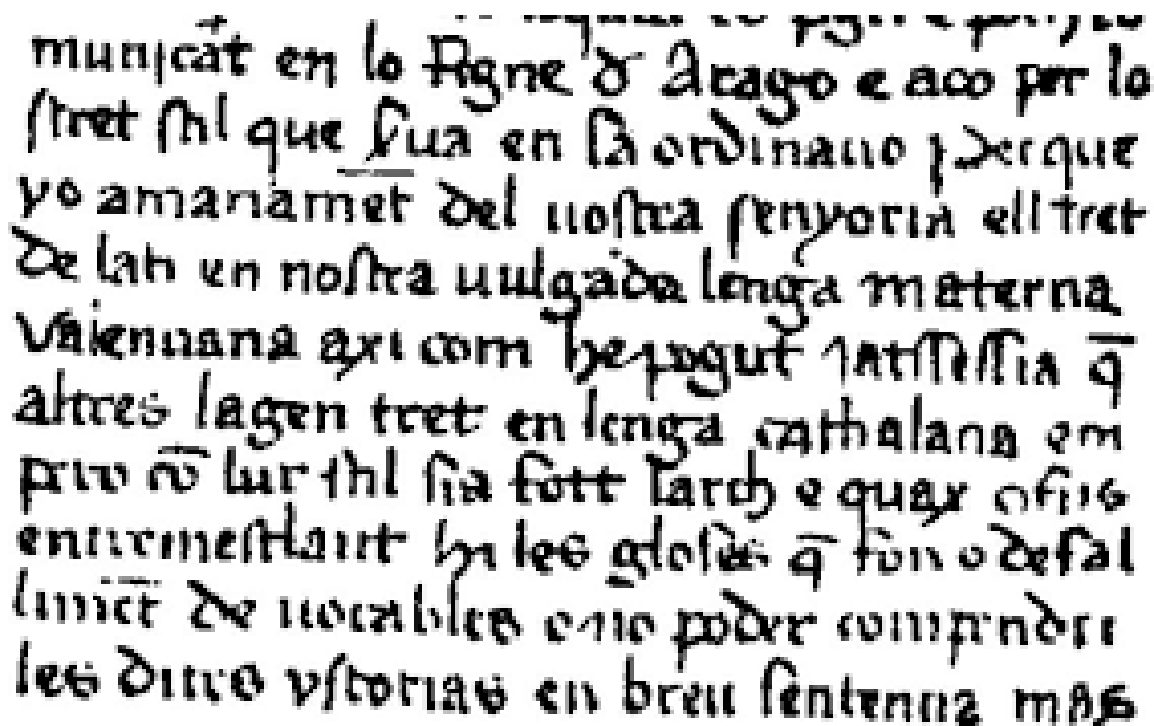 municat en lo Rigne d Arago e aco per lo
stret stil que serua en sa ordinacio perque
yo amanament del uostra senyoria ell tret
de lati en nostra uulgada lenga materna
Valenciana axi com he pogut iatssessia q̄
altres lagen tret en lenga cathalana em
pero cō lur stil sia fort larch e quax cofus
les gloses q̄ son o defal
limēt de uocables e no poder compendre
les dites ystories en breu sentencia mes